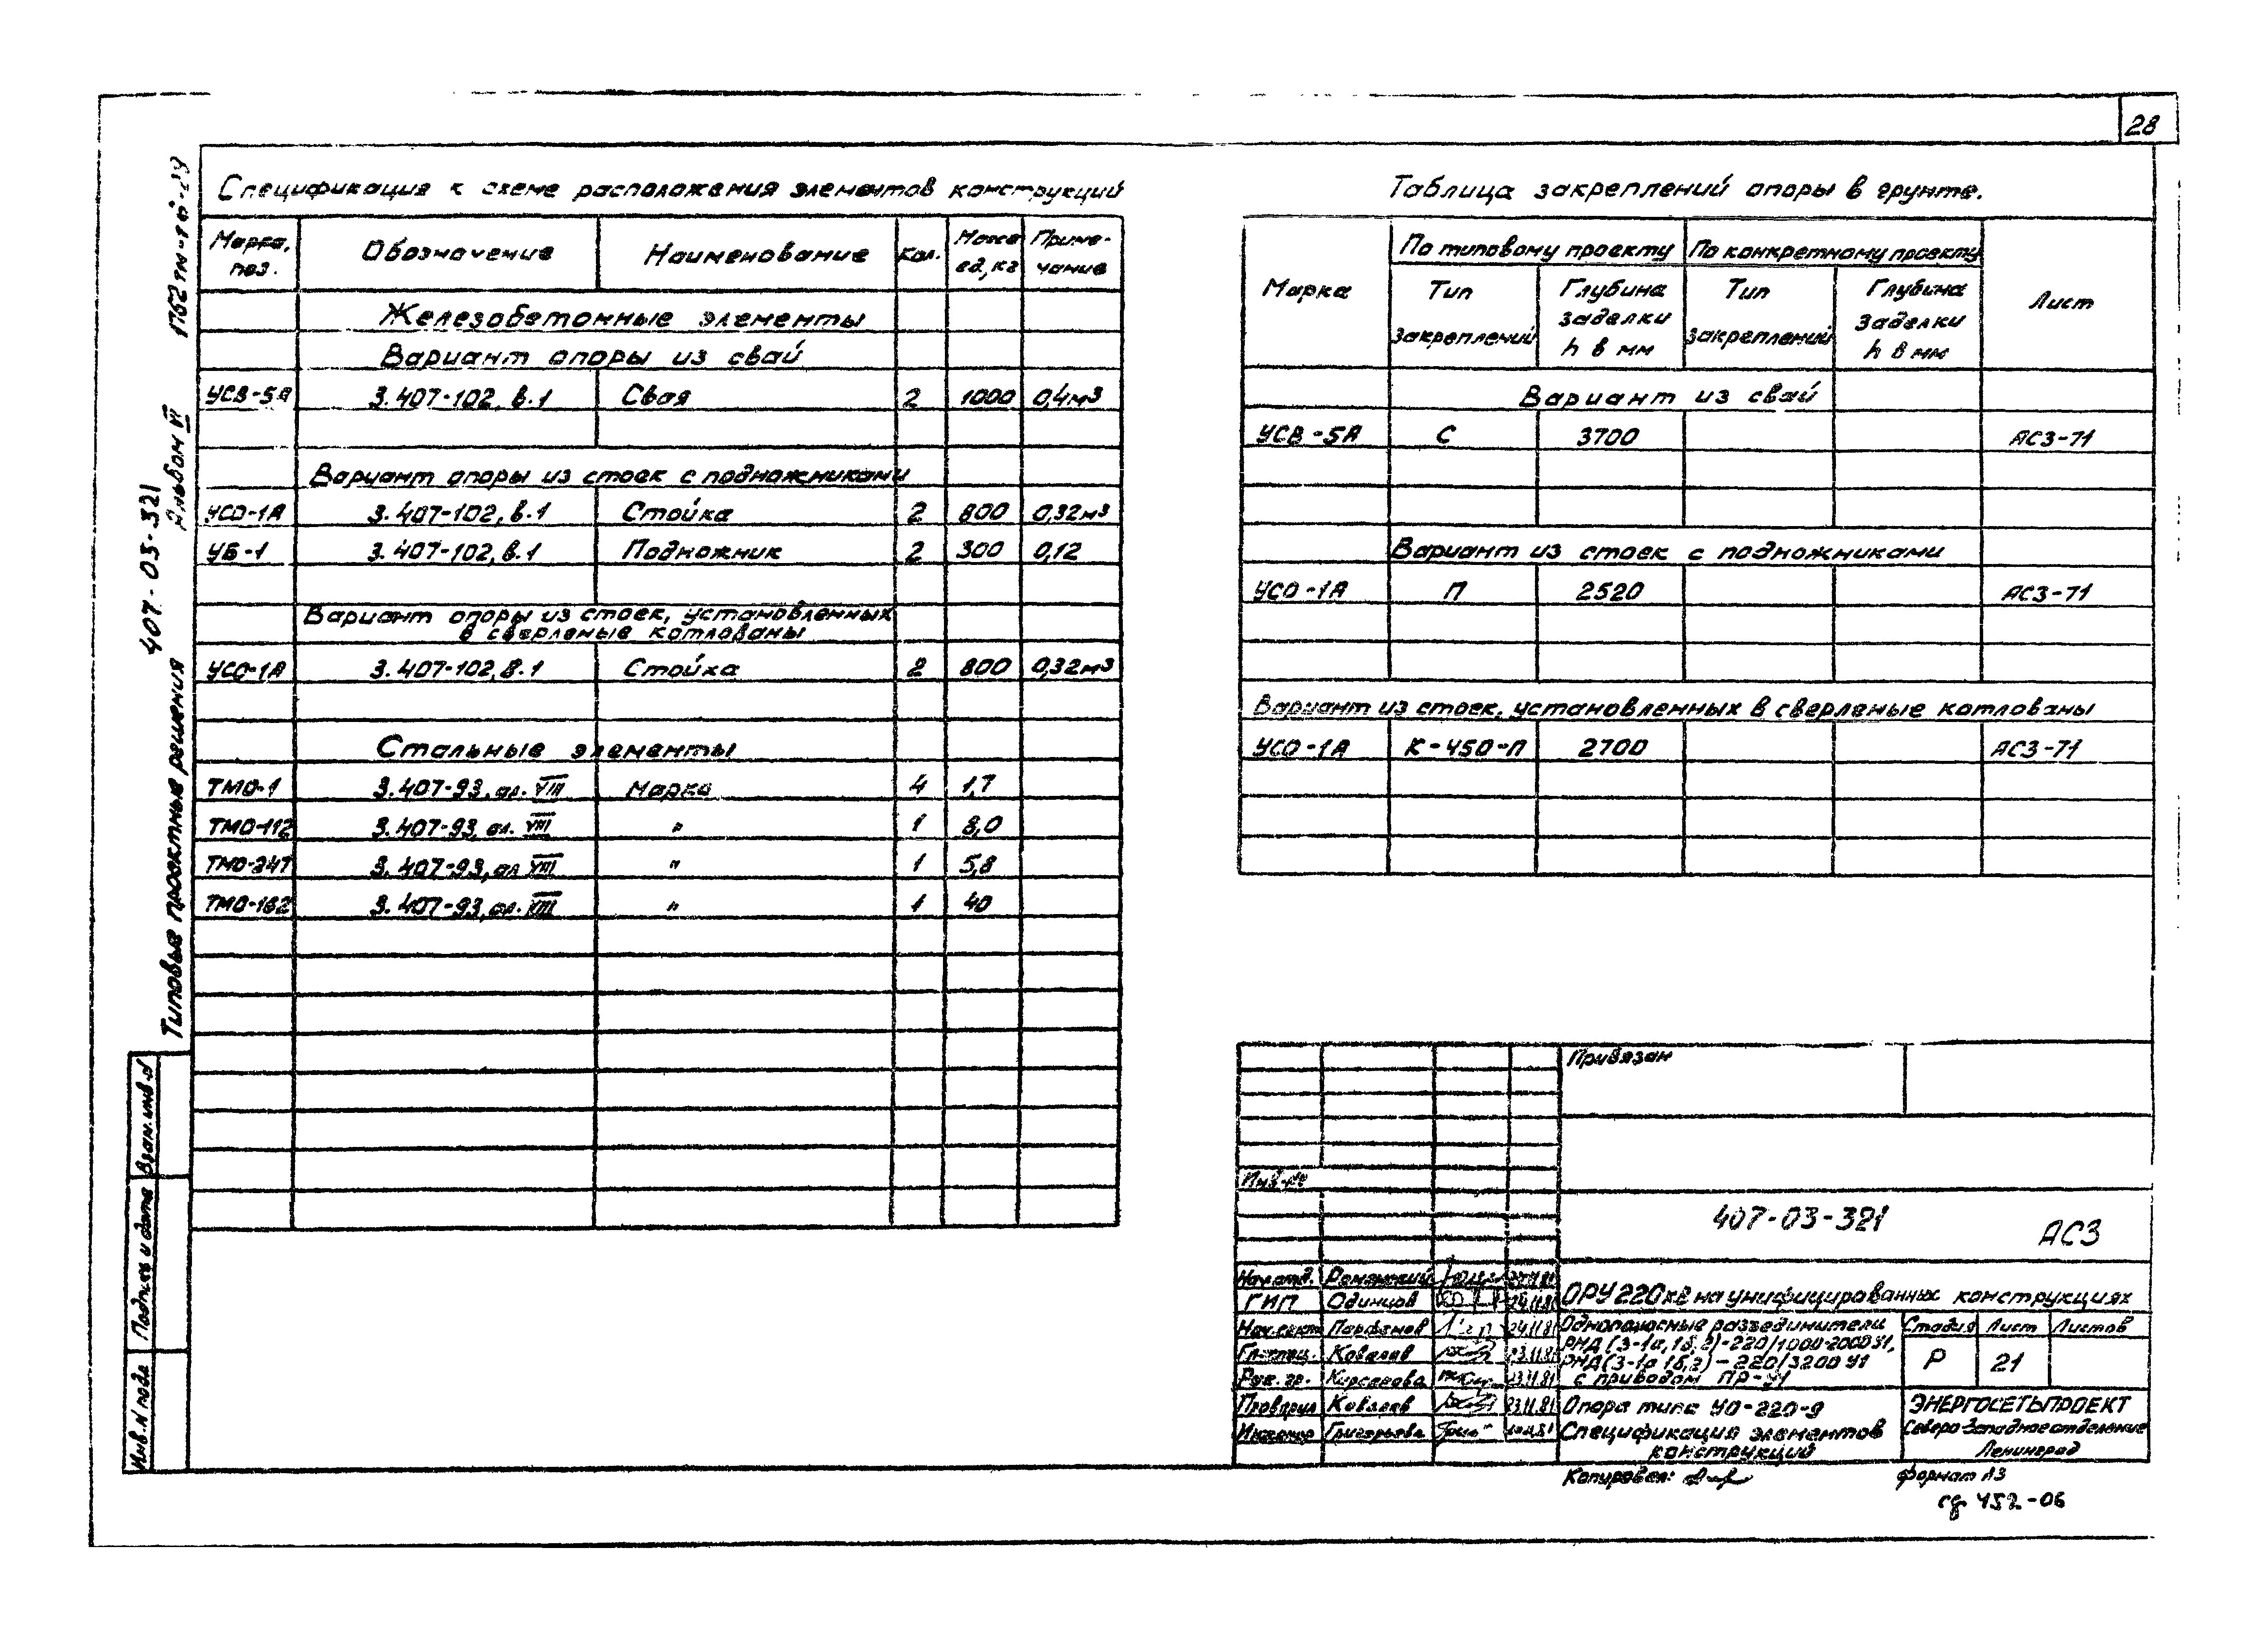 28
Спецификация к схеме расположения элементов конструкций
Марка, поз. Обозначение Наименование Кол. Масса ед, кг Приме-чание
Железобетонные элементы
Вариант опоры из свай
УСВ-5А 3.407-102, в.1 Свая 2 1000 0,4м³
Вариант опоры из стоек с подножниками
УСО-1А 3.407-102, в.1 Стойка 2 800 0,32м³
УБ-1 3.407-102, в.1 Подножник 2 300 0,12
Вариант опоры из стоек, установленных
в сверленые котлованы
УСО-1А 3.407-102, в.1 Стойка 2 800 0,32м³
Стальные элементы
ТМО-1 3.407-93, ал. VIII Марка 4 1,7
ТМО-112 3.407-93, ал. VIII " 1 8,0
ТМО-247 3.407-93, ал VIII " 1 5,8
ТМО-162 3.407-93, ал. " 1 40
Таблица закреплений опоры в грунте.
Марка По типовому проекту По конкретному проекту Лист
Тип закреплений Глубина заделки h в мм Тип закреплений Глубина заделки h в мм
Вариант из свай
УСВ-5А С 3700 АС3-71
Вариант из стоек с подножниками
УСО-1А П 2520 АС3-71
Вариант из стоек, установленных в сверленые котлованы
УСО-1А К-450-П 2700 АС3-71
407-03-321
Альбом VI
Типовые проектные решения
Взам.инв.N
Подпись и дата
Инв.N подл
Привязан
Инв.№
407-03-321
АС3
Нач.отд. Роменский
ГИП Одинцов
Нач.сект Парфенов 24.11.81
Гл.спец. Ковалев 23.11.81
Рук. гр. Карсанова 23.11.81
Проверил Ковалев 23.11.81
Инженер Григорьева
ОРУ 220кВ на унифицированных конструкциях
Однополюсные разъединители
РНД (3-1а, 1б, 2)-220/1000-2000 У1,
РНД (3-1а 1б, 2) - 220/3200 У1
с приводом ПР-У1
Стадия Лист Листов
Р 21
Опора типа УО-220-9
Спецификация элементов
конструкций
ЭНЕРГОСЕТЬПРОЕКТ
Северо-Западное отделение
Ленинград
Копировал:
формат А3
сф 452-06